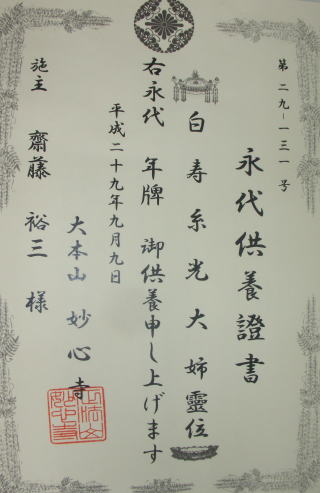 第二九-一三一号
永代供養證書
白寿糸光大姉靈位
右永代年牌御供養申し上げます
平成二十九年九月九日
大本山妙心寺
施主齋藤裕三様